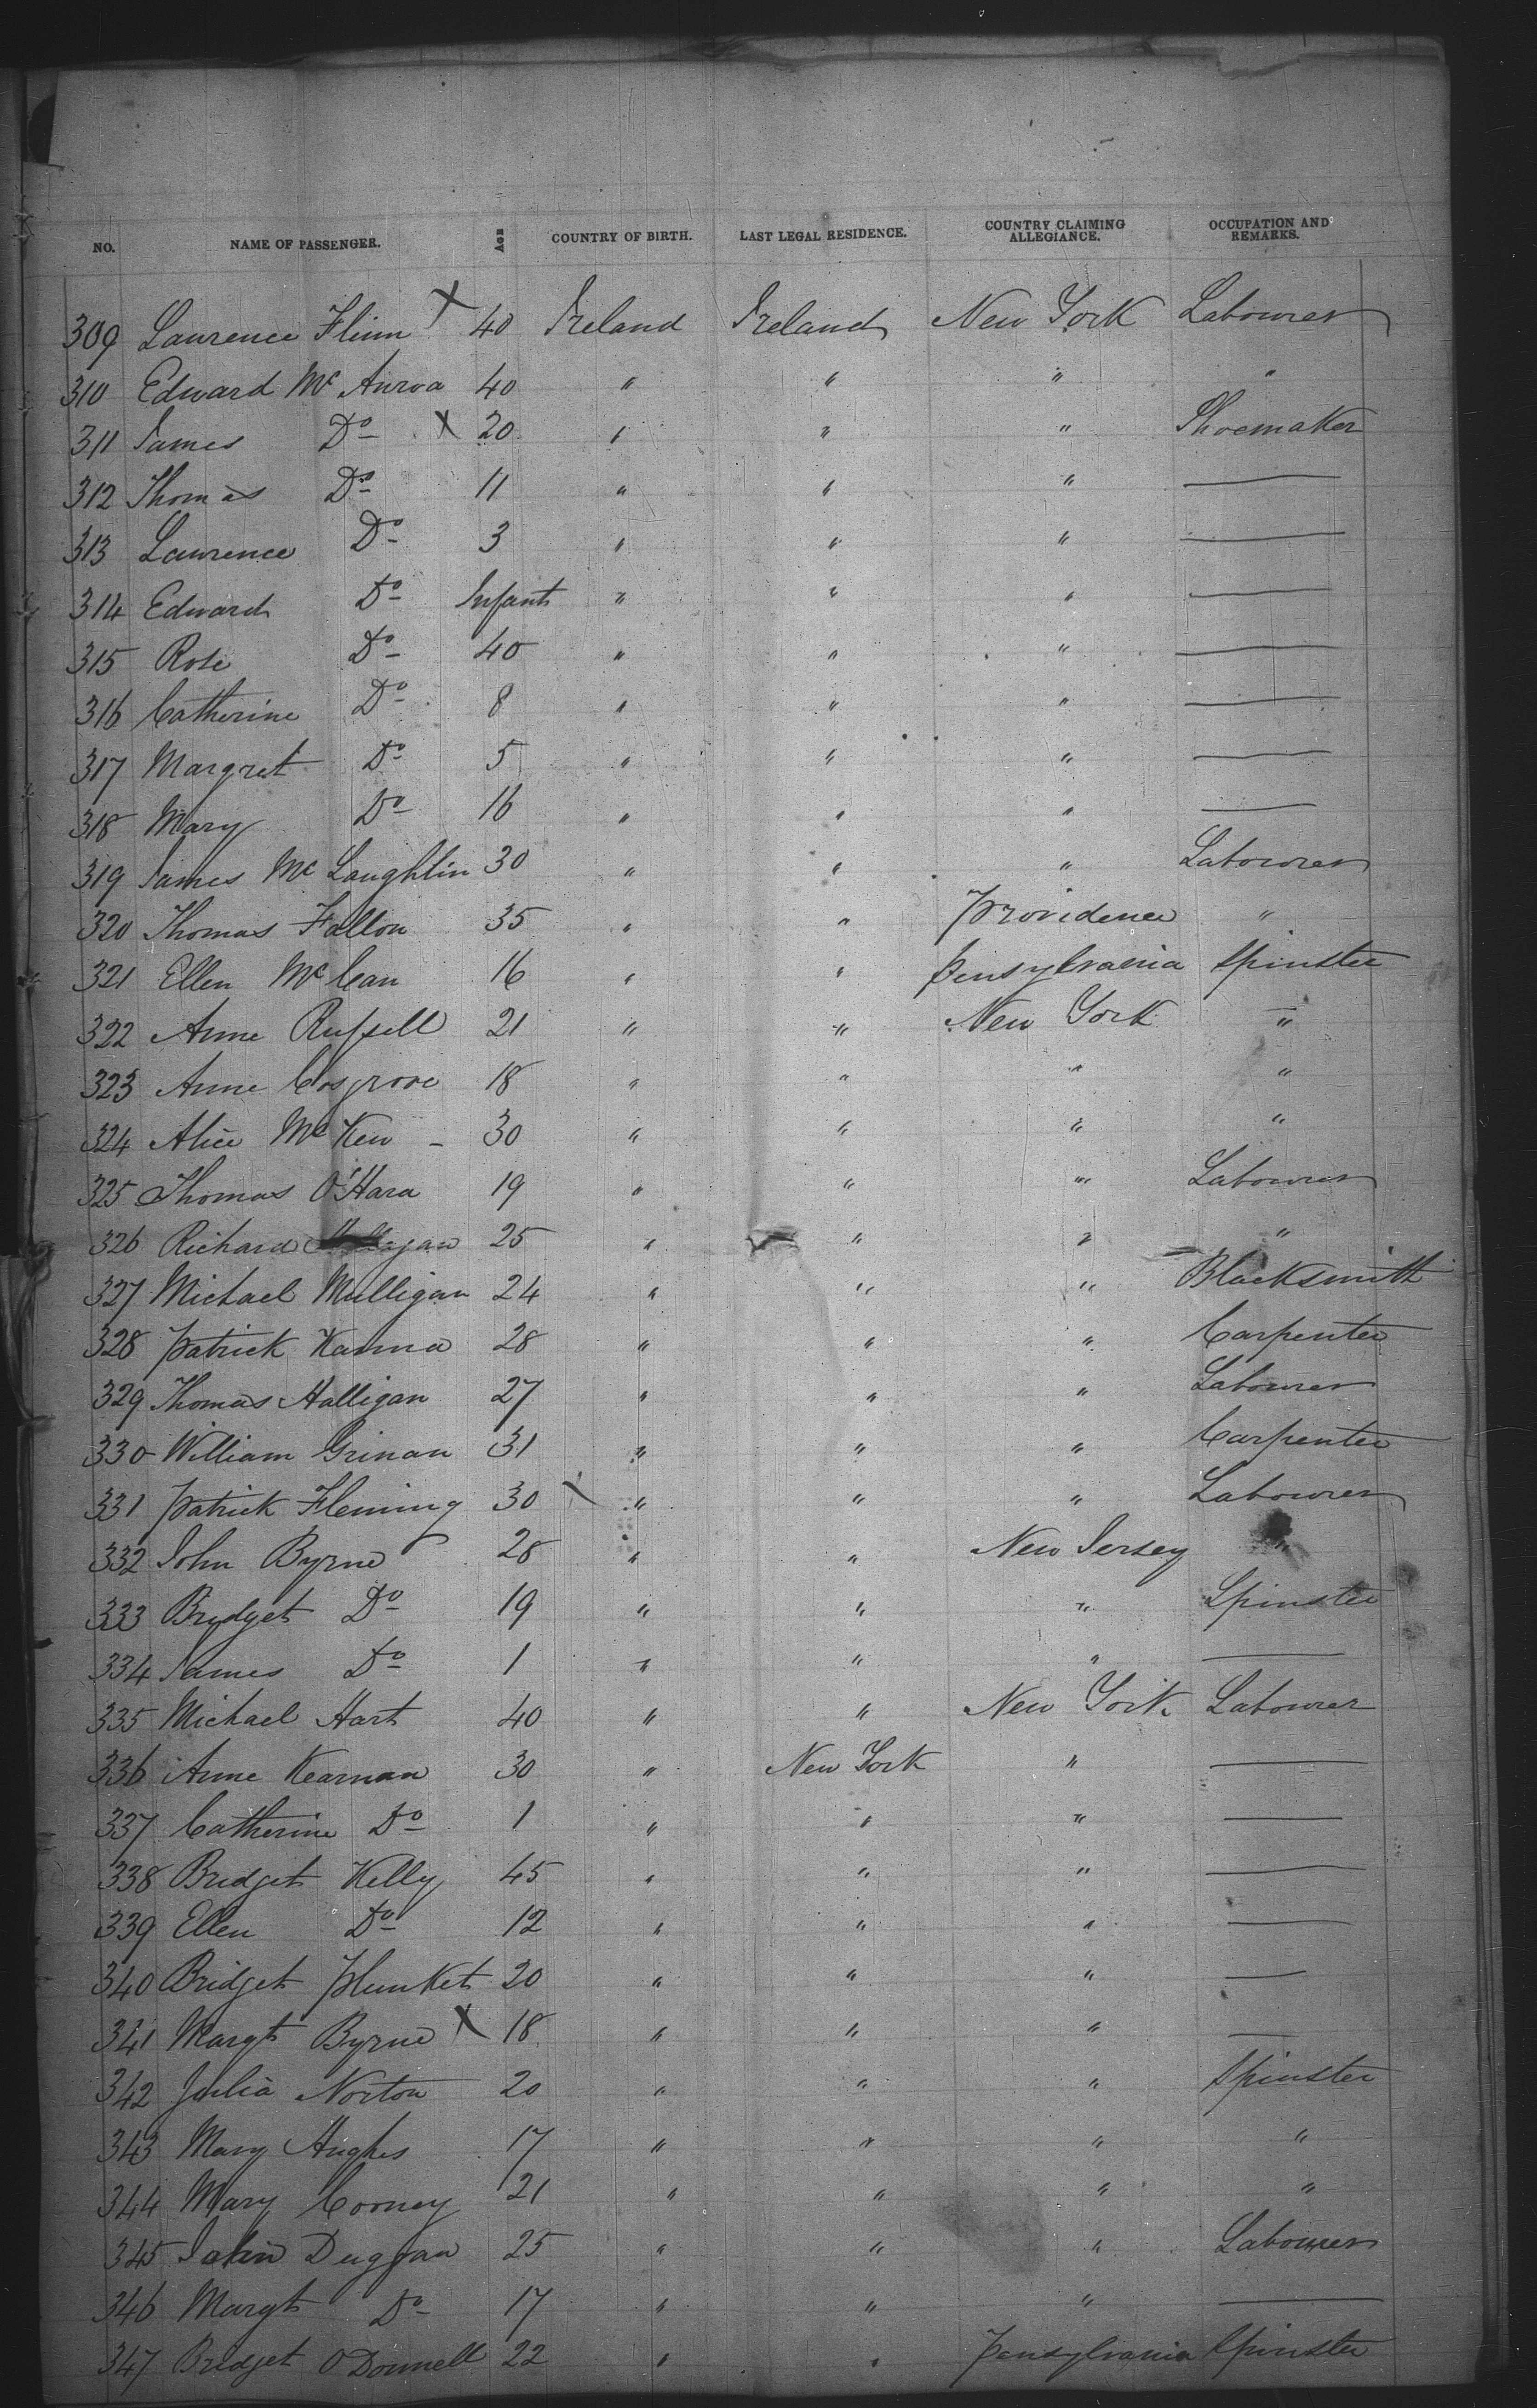 NO. NAME OF PASSENGER. AGE COUNTRY OF BIRTH. LAST LEGAL RESIDENCE. COUNTRY CLAIMING ALLEGIANCE. OCCUPATION AND REMARKS.
309 Lawrence Flinn X 40 Ireland Ireland New York Labourer
310 Edward Mc Anroa 40 " " " "
311 James Do X 20 " " " Shoemaker
312 Thomas Do 11 " " " —
313 Lawrence Do 3 " " " —
314 Edward Do Infant " " " —
315 Rose Do 40 " " " —
316 Catherine Do 8 " " " —
317 Margret Do 5 " " " —
318 Mary Do 16 " " " —
319 James Mc Laughlin 30 " " " Labourer
320 Thomas Fallon 35 " " Providence "
321 Ellen McCan 16 " " Pensylvania Spinster
322 Anne Russell 21 " " New York "
323 Anne Cosgrove 18 " " " "
324 Alice McKew - 30 " " " "
325 Thomas O'Hara 19 " " " Labourer
326 Richard 25 " " " "
327 Michael Mulligan 24 " " " Blacksmith
328 Patrick Kanna 28 " " " Carpenter
329 Thomas Halligan 27 " " " Labourer
330 William Grinan 31 " " " Carpenter
331 Patrick Fleming 30 X " " " Labourer
332 John Byrne 28 " " New Jersey "
333 Bridget Do 19 " " " Spinster
334 James Do 1 " " " —
335 Michael Hart 40 " " New York Labourer
336 Anne Kearnan 30 " New York " —
337 Catherine Do 1 " " " —
338 Bridget Kelly 45 " " " —
339 Ellen Do 12 " " " —
340 Bridget Plunket 20 " " " —
341 Margt Byrne X 18 " " " —
342 Julia Norton 20 " " " Spinster
343 Mary Hughes 17 " " " "
344 Mary Cooney 21 " " " "
345 John Duggan 25 " " " Labourer
346 Margt Do 17 " " " —
347 Bridget O Donnell 22 " " Pensylvania Spinster